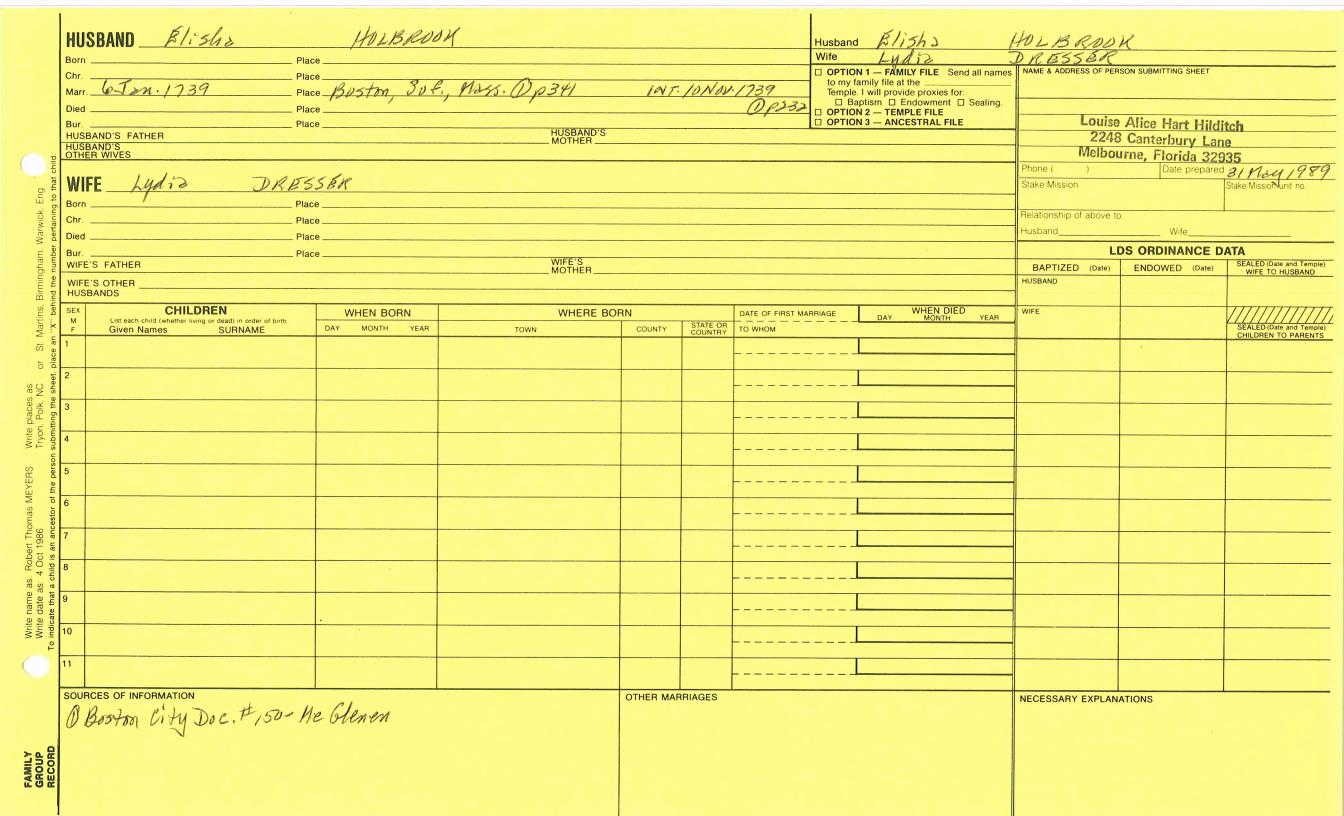 HUSBAND Elisha HOLBROOK
Born Place
Chr. Place
Marr. 6 Jan. 1739 Place Boston, Suf., Mass. ① p341 INT. 10 Nov. 1739
Died Place ① p232
Bur. Place
HUSBAND'S FATHER HUSBAND'S MOTHER
HUSBAND'S OTHER WIVES
Husband Elisha HOLBROOK
Wife Lydia DRESSER
☐ OPTION 1 — FAMILY FILE Send all names
to my family file at the
Temple. I will provide proxies for:
☐ Baptism ☐ Endowment ☐ Sealing.
☐ OPTION 2 — TEMPLE FILE
☐ OPTION 3 — ANCESTRAL FILE
NAME & ADDRESS OF PERSON SUBMITTING SHEET
Louise Alice Hart Hilditch
2248 Canterbury Lane
Melbourne, Florida 32935
Phone ( ) Date prepared 31 May 1989
Stake Mission Stake Mission unit no.
Relationship of above to
Husband Wife
WIFE Lydia DRESSER
Born Place
Chr. Place
Died Place
Bur. Place
WIFE'S FATHER WIFE'S MOTHER
WIFE'S OTHER HUSBANDS
LDS ORDINANCE DATA
BAPTIZED (Date) ENDOWED (Date) SEALED (Date and Temple) WIFE TO HUSBAND
HUSBAND
WIFE
SEALED (Date and Temple) CHILDREN TO PARENTS
SEX M F
CHILDREN
List each child (whether living or dead) in order of birth.
Given Names SURNAME
WHEN BORN
DAY MONTH YEAR
WHERE BORN
TOWN COUNTY STATE OR COUNTRY
DATE OF FIRST MARRIAGE
TO WHOM
WHEN DIED
DAY MONTH YEAR
1
2
3
4
5
6
7
8
9
10
11
SOURCES OF INFORMATION
① Boston City Doc. #150 - Mc Glenen
OTHER MARRIAGES
NECESSARY EXPLANATIONS
Write name as: Robert Thomas MEYERS Write places as: Tryon, Polk, NC or St. Martins, Birmingham, Warwick, Eng
Write date as: 4 Oct 1986
To indicate that a child is an ancestor of the person submitting the sheet, place an "X" behind the number pertaining to that child.
FAMILY GROUP RECORD